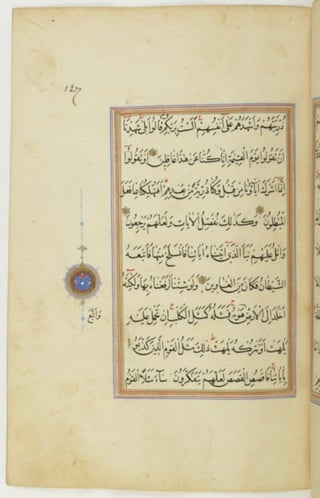 127
ذُرِّيَّتَهُمْ وَأَشْهَدَهُمْ عَلَى أَنْفُسِهِمْ أَلَسْتُ بِرَبِّكُمْ قَالُوا بَلَى شَهِدْنَا
أَنْ تَقُولُوا يَوْمَ الْقِيَمَةِ إِنَّا كُنَّا عَنْ هَذَا غَافِلِينَ أَوْ تَقُولُوا
إِنَّمَا أَشْرَكَ آبَاؤُنَا مِنْ قَبْلُ وَكُنَّا ذُرِّيَّةً مِنْ بَعْدِهِمْ أَفَتُهْلِكُنَا بِمَا فَعَلَ
الْمُبْطِلُونَ وَكَذَلِكَ نُفَصِّلُ الْآيَاتِ وَلَعَلَّهُمْ يَرْجِعُونَ
وَاتْلُ عَلَيْهِمْ نَبَأَ الَّذِي آتَيْنَاهُ آيَاتِنَا فَانْسَلَخَ مِنْهَا فَأَتْبَعَهُ
الشَّيْطَانُ فَكَانَ مِنَ الْغَاوِينَ وَلَوْ شِئْنَا لَرَفَعْنَاهُ بِهَا وَلَكِنَّهُ
أَخْلَدَ إِلَى الْأَرْضِ هَوَيهُ فَمَثَلُهُ كَمَثَلِ الْكَلْبِ إِنْ تَحْمِلْ عَلَيْهِ
وَاتَّبَعَ
يَلْهَثْ أَوْ تَتْرُكْهُ يَلْهَثْ ذَلِكَ مَثَلُ الْقَوْمِ الَّذِينَ كَذَّبُوا
بِآيَاتِنَا فَاقْصُصِ الْقَصَصَ لَعَلَّهُمْ يَتَفَكَّرُونَ سَاءَ مَثَلًا الْقَوْمُ